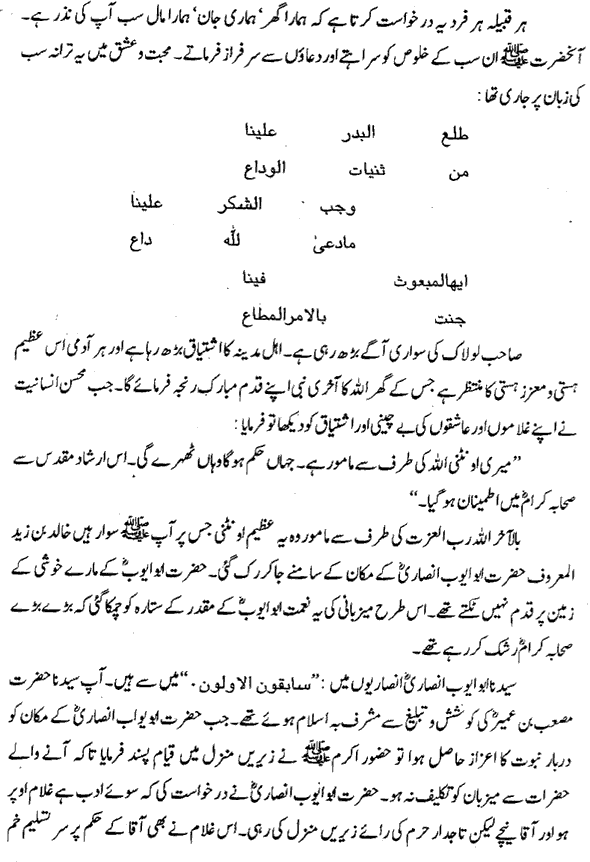 ہر قبیلہ ہر فرد یہ درخواست کرتا ہے کہ ہمارا گھر‘ ہماری جان‘ ہمارا مال سب آپ کی نذر ہے۔
آنحضرت ﷺ ان سب کے خلوص کو سراہتے اور دعاؤں سے سرفراز فرماتے۔ محبت و عشق میں یہ ترانہ سب
کی زبان پر جاری تھا:
طلع البدر علینا
من ثنیات الوداع
وجب الشکر علینا
مادعیٰ للّٰہ داع
ایھالمبعوث فینا
جنت بالامرالمطاع
صاحب لولاک کی سواری آگے بڑھ رہی ہے۔ اہل مدینہ کا اشتیاق بڑھ رہا ہے اور ہر آدمی اس عظیم
ہستی و معزز ہستی کا منتظر ہے جس کے گھر اللہ کا آخری نبی اپنے قدم مبارک رنجہ فرمائے گا۔ جب محسن انسانیت
نے اپنے غلاموں اور عاشقوں کی بے چینی اور اشتیاق کو دیکھا تو فرمایا:
”میری اونٹنی اللہ کی طرف سے مامور ہے۔ جہاں حکم ہوگا وہاں ٹھہرے گی۔ اس ارشاد مقدس سے
صحابہ کرامؓ میں اطمینان ہو گیا۔“
بالآخر اللہ رب العزت کی طرف سے مامور وہ یہ عظیم اونٹنی جس پر آپ ﷺ سوار ہیں خالد بن زید
المعروف حضرت ابو ایوب انصاریؓ کے مکان کے سامنے جا کر رک گئی۔ حضرت ابو ایوبؓ کے مارے خوشی کے
زمین پر قدم نہیں ٹکتے تھے۔ اس طرح میزبانی کی یہ نعمت ابو ایوبؓ کے مقدر کے ستارہ کو چمکا گئی کہ بڑے بڑے
صحابہ کرامؓ رشک کر رہے تھے۔
سیدنا ابو ایوب انصاریؓ انصاریوں میں : ”سابقون الاولون.“ میں سے ہیں۔ آپ سیدنا حضرت
مصعب بن عمیرؓ کی کوشش و تبلیغ سے مشرف بہ اسلام ہوئے تھے۔ جب حضرت ابو یواب انصاریؓ کے مکان کو
دربار نبوت کا اعزاز حاصل ہوا تو حضور اکرم ﷺ نے زیریں منزل میں قیام پسند فرمایا تاکہ آنے والے
حضرات سے میزبان کو تکلیف نہ ہو۔ حضرت ابو ایوب انصاریؓ نے درخواست کی کہ سوئے ادب ہے غلام اوپر
ہو اور آقا نیچے لیکن تاجدار حرم کی رائے زیریں منزل کی رہی۔ اس غلام نے بھی آقا کے حکم پر سر تسلیم خم